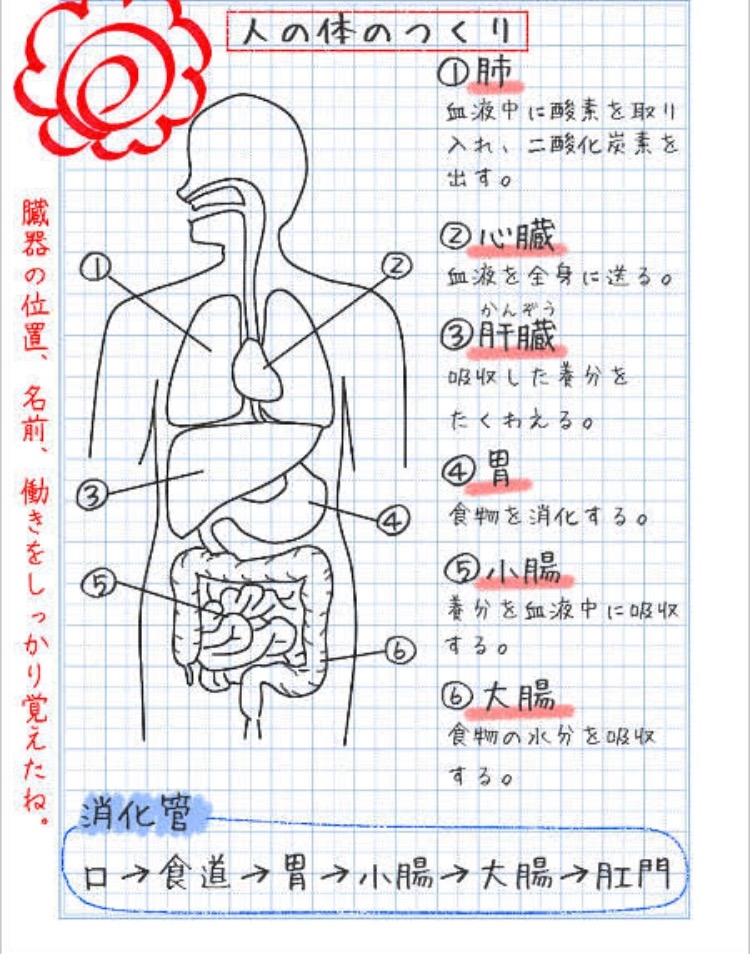 人の体のつくり
①肺
血液中に酸素を取り
入れ、二酸化炭素を
出す。
②心臓
血液を全身に送る。
かんぞう
③肝臓
吸収した養分を
たくわえる。
④胃
食物を消化する。
⑤小腸
養分を血液中に吸収
する。
⑥大腸
食物の水分を吸収
する。
①
②
③
④
⑤
⑥
臓器の位置、名前、働きをしっかり覚えたね。
消化管
口→食道→胃→小腸→大腸→肛門